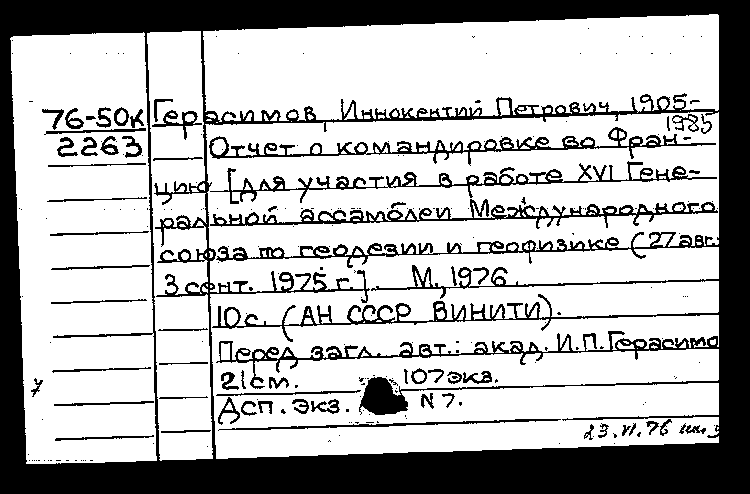 76-50к Герасимов, Иннокентий Петрович, 1905-
1985
2263 Отчет о командировке во Фран-
цию [для участия в работе XVI Гене-
ральной ассамблеи Международного
союза по геодезии и геофизике (27 авг.-
3 сент. 1975 г.]. М., 1976.
10с. (АН СССР ВИНИТИ).
Перед загл. авт.: акад. И.П.Герасимо
21см. 107экз.
7
Дсп. экз. N 7.
23.VI.76